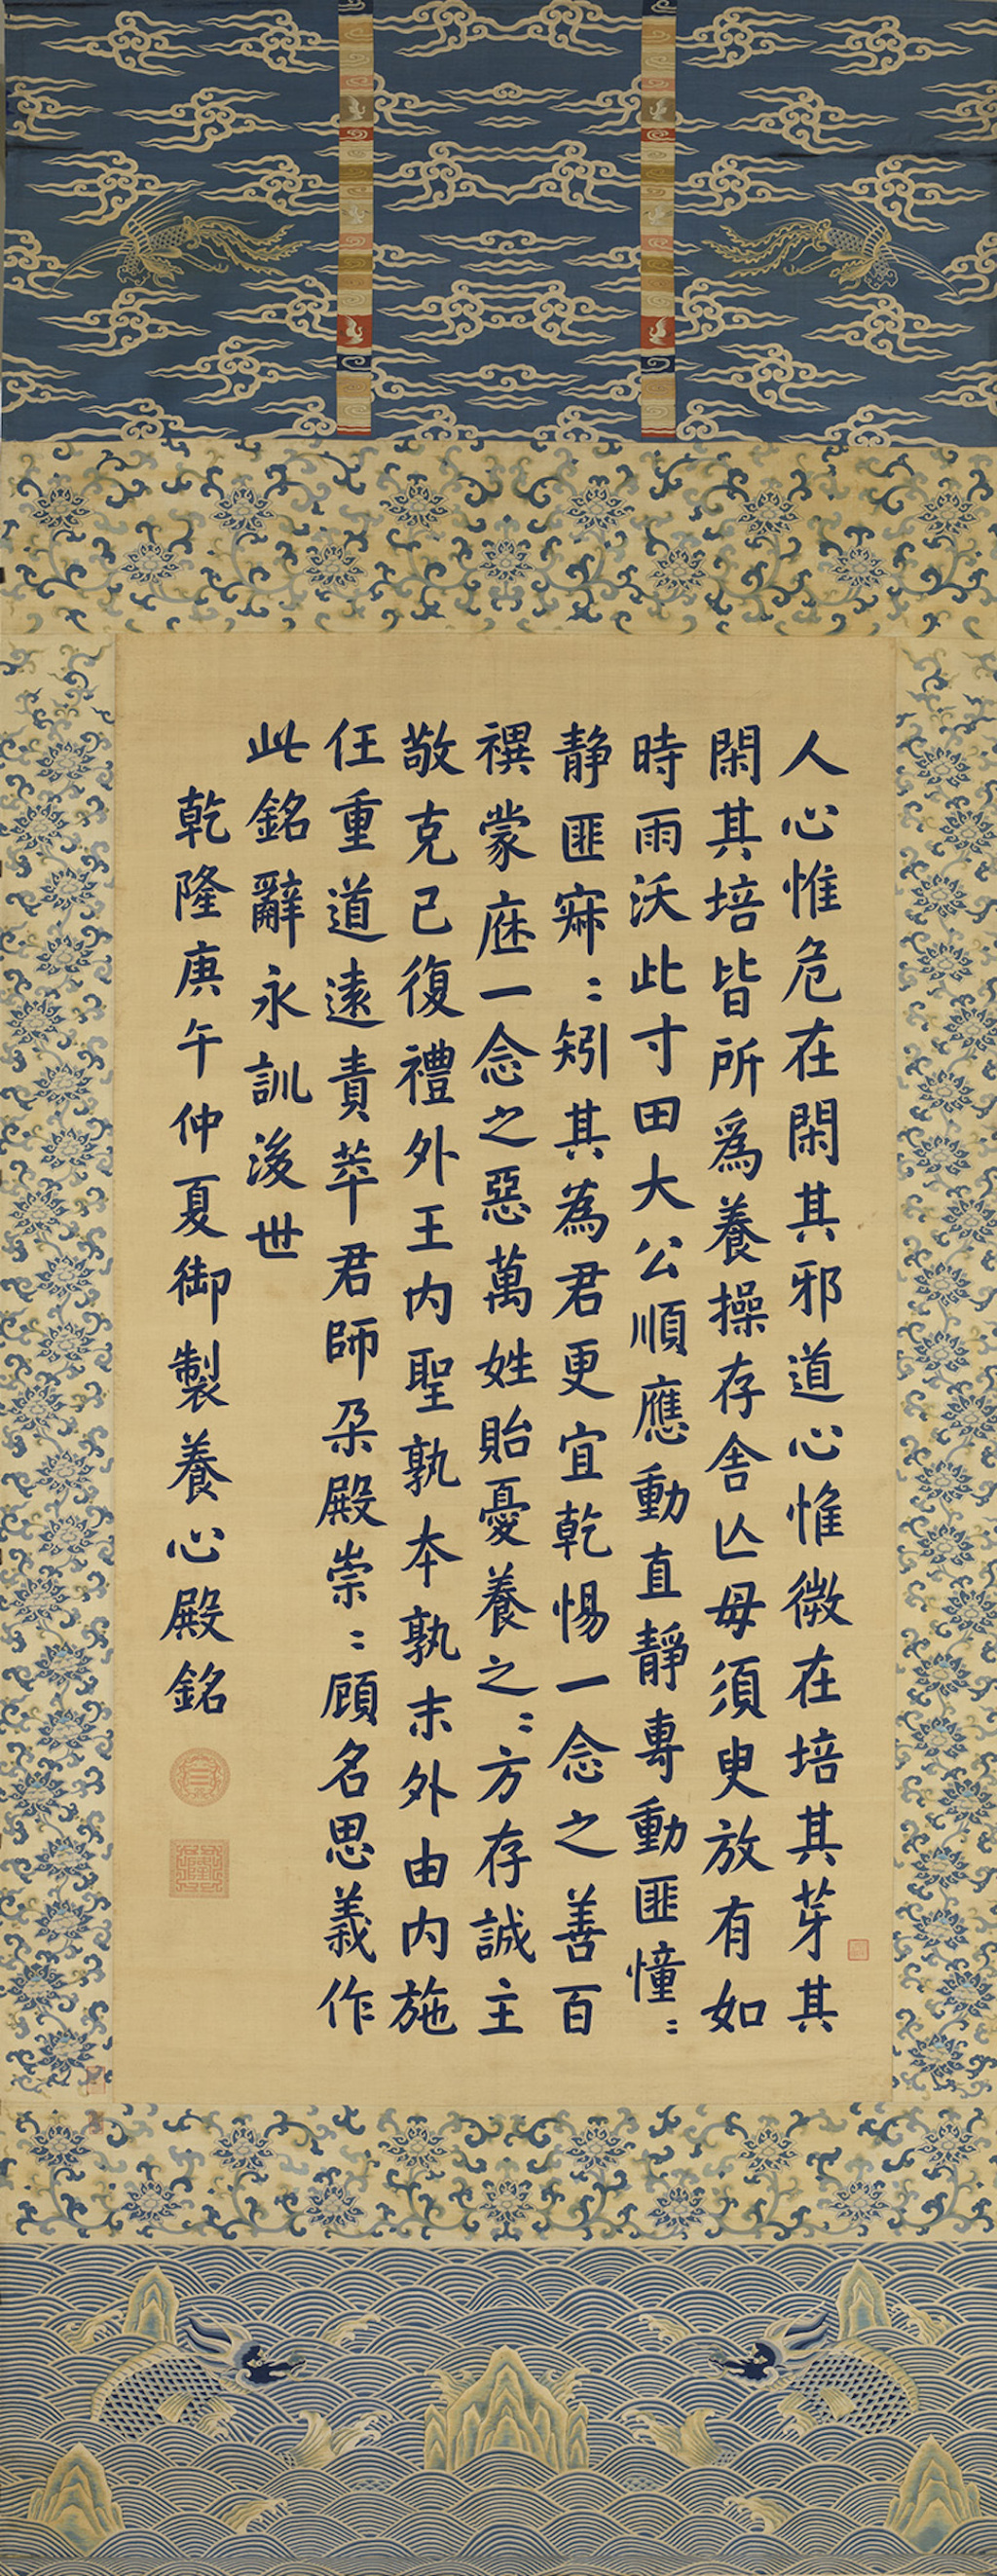 人心惟危在閑其邪道心惟微在培其芽其
閑其培皆所爲養操存舍亾毋須臾放有如
時雨沃此寸田大公順應動直靜專動匪憧:
静匪寂:矧其為君更宜乾惕一念之善百
禩蒙庥一念之惡萬姓貽憂養之:方存誠主
敬克己復禮外王内聖孰本孰末外由内施
任重道遠責萃君師朶殿崇:顧名思義作
此銘辭永訓後世
乾隆庚午仲夏御製養心殿銘